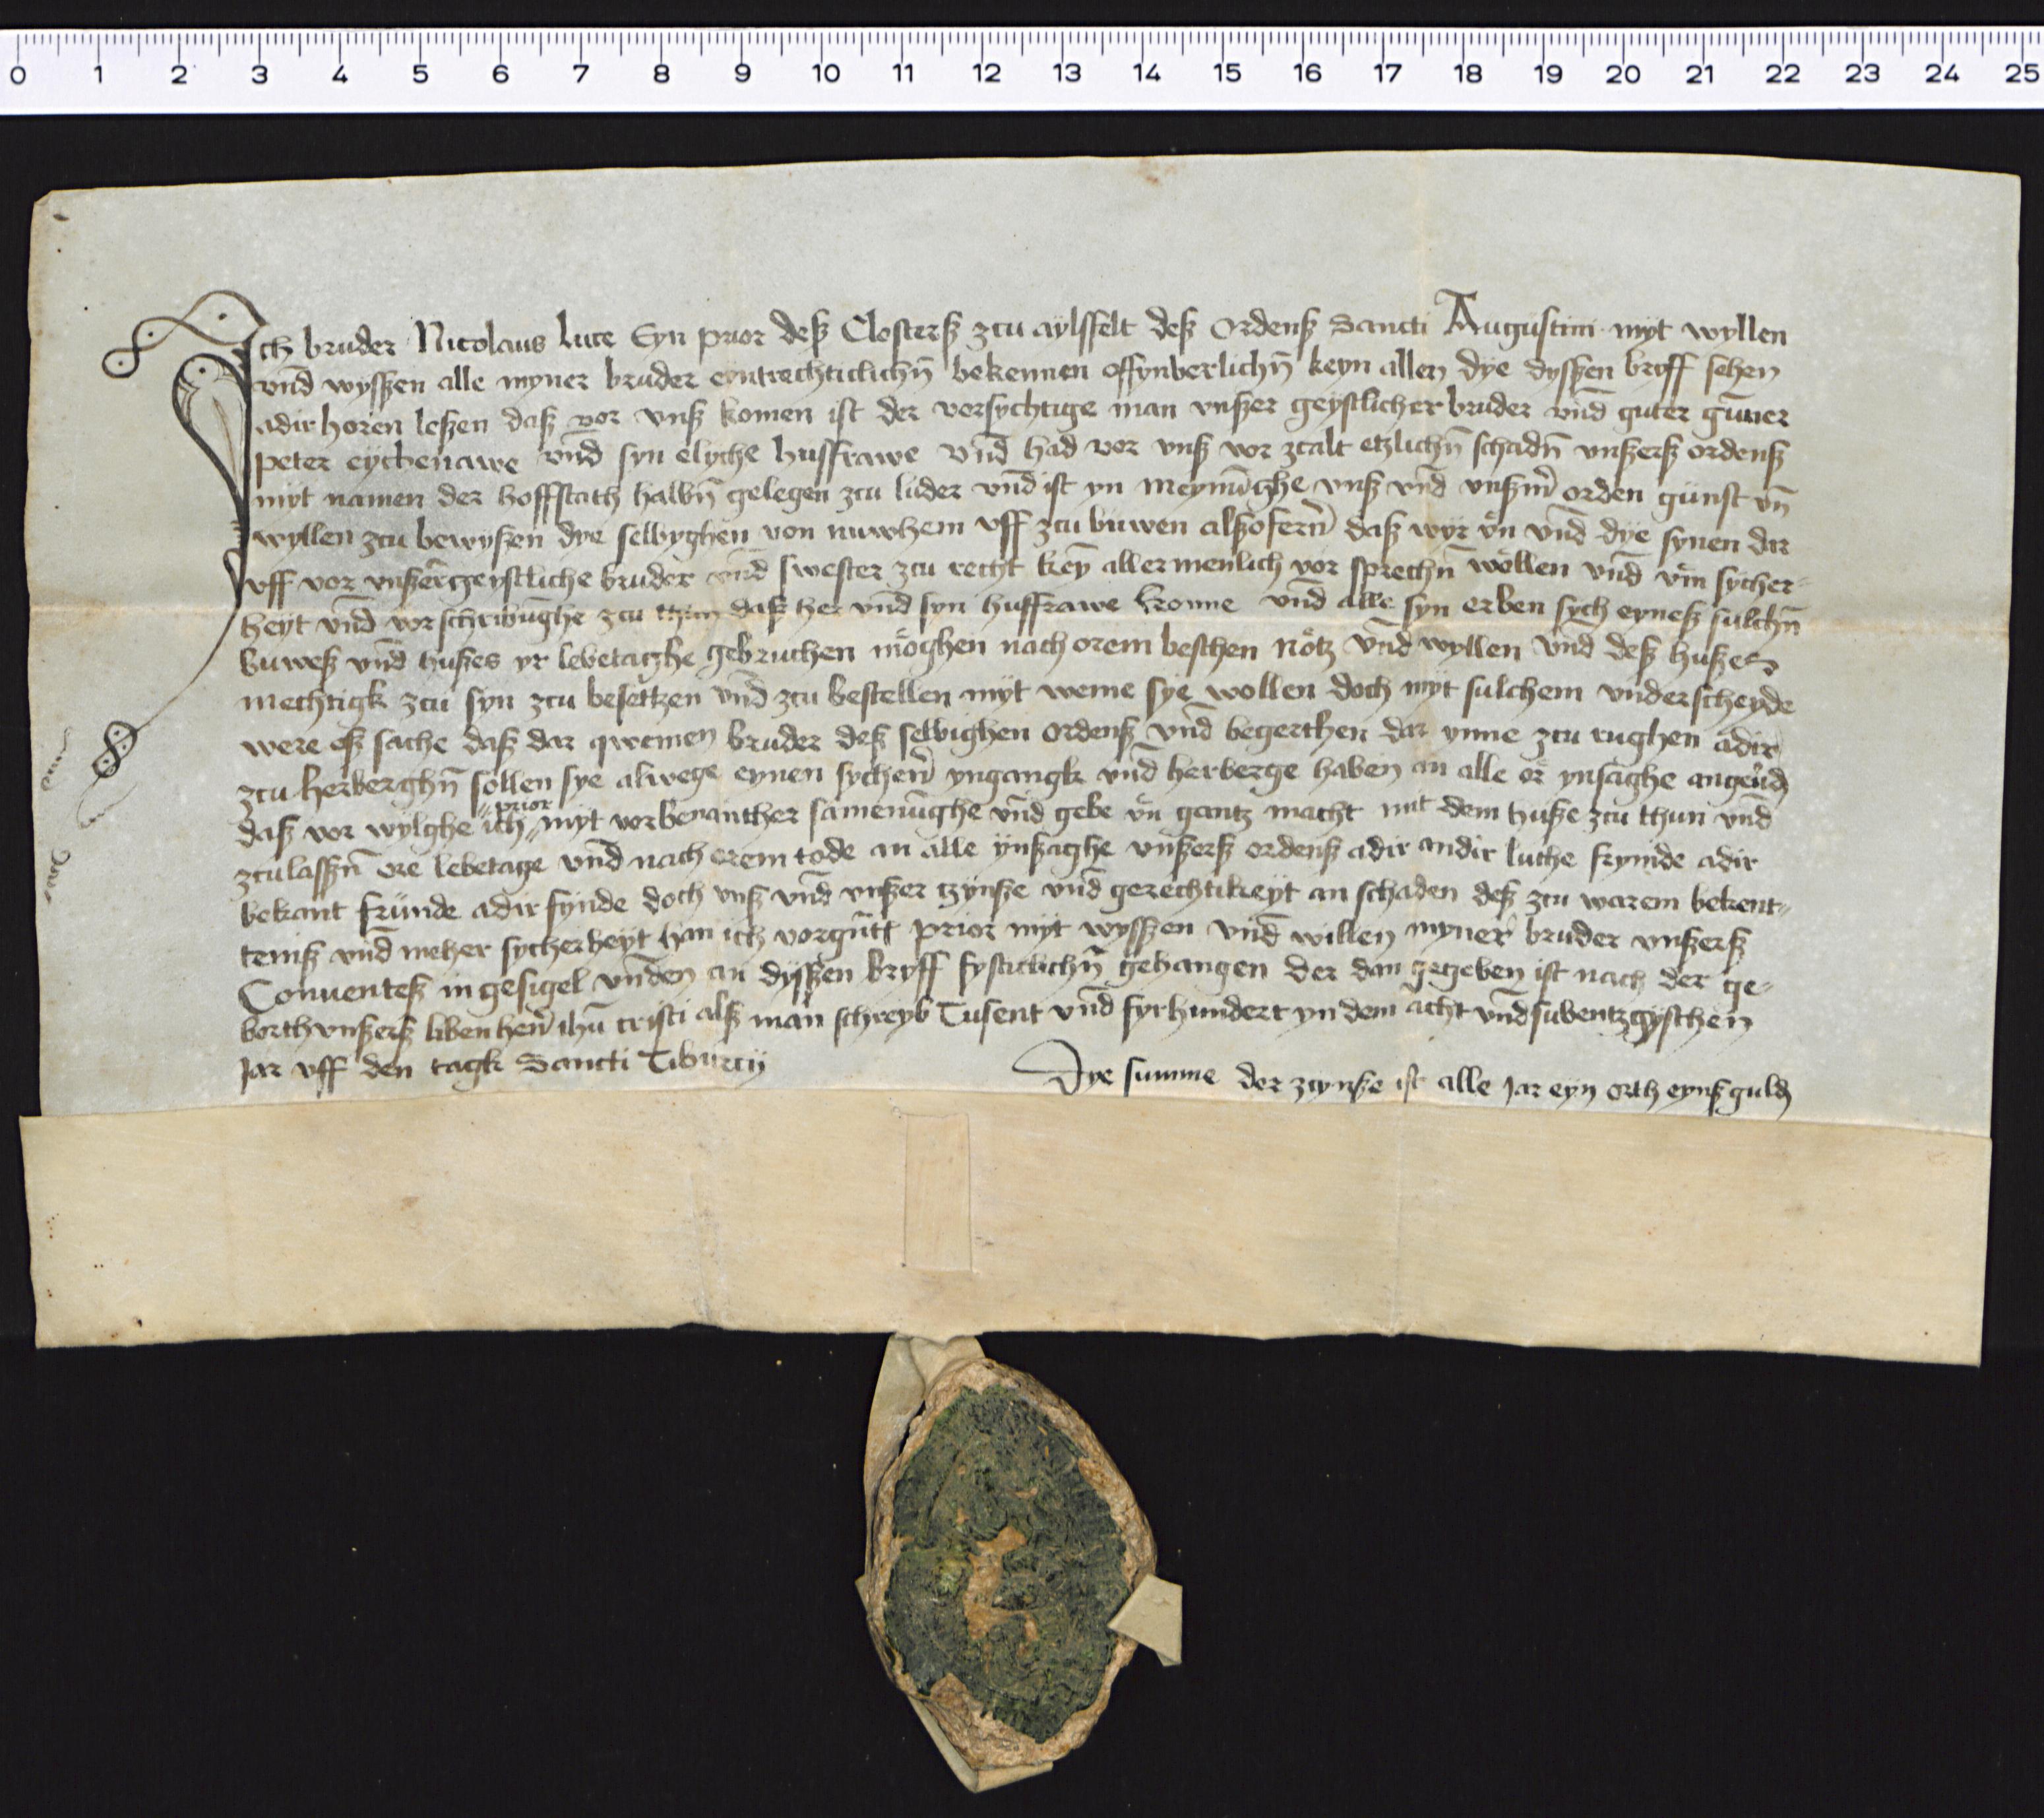 0 1 2 3 4 5 6 7 8 9 10 11 12 13 14 15 16 17 18 19 20 21 22 23 24 25
Ich bruder Nicolaus luce Eyn prior deß Closterß zcu aylsfelt deß Ordenß Sancti Augustini myt wyllen
vnd wyßzen alle myner bruder eyntrechticlichn̄ bekennen offynberlichn̄ keyn allen dye dyßzen bryff sehen
adir horen leßen daß vor vnß komen ist der vorsychtige man vnßer geystlicher bruder vnd guter gūner
peter eychenawe vnd syn elyche husfrawe vnd had vor vnß vor zcalt etzlichn̄ schadn̄ vnßerß ordenß
myt namen der hoffstath halbn̄ gelegen zcu luder vnd ist yn meynūghe vnß vnd vnßm̄ orden günst vn̄
wyllen zcu bewyßen dye selbyghen von nuwhem vff zcu buwen alßofern̄ daß wyr ön vnd dye synen dar
vff vor vnßer geystliche bruder vnd swester zcu recht key allermenlich vor sprechn̄ wöllen vnd vm̄ sycher-
heyt vnd vorschribūghe zcu thun daß her vnd syn husfrawe kronne vnd alle syn erben sych eyneß sulchn̄
buweß vnd hußes yr lebetaghe gebruchen möghen nach orem beschen nötz vnd wyllen vnd deß hußes
mechtigk zcu syn zcu besettzen vnd zcu bestellen myt weme sye wollen doch myt sulchem vnderscheyde
were eß sache daß dar qwemen bruder deß selbighen ordenß vnd begerthen dar ynne zcu rughen adir
zcu herberghn̄ sollen sye alwege eynen sychern̄ yngangk vnd herberge haben an alle ör ynsaghe angeūd
daß vor wylghe ich prior myt vorbenanther samenūghe vnd gebe ön gantz macht mit dem huße zcu thun vnd
zculaßzn̄ ore lebetage vnd nach orem tode an alle ynßaghe vnßerß ordenß adir andir luthe frynde adir
bekant fründe adir fynde doch vnß vnd vnßer tzynße vnd gerechtikeyt an schaden deß zcu warem bekent-
teniß vnd meher sycherheyt han ich vorgūtt prior myt wyßzen vnd willen myner bruder vnßerß
Conuenteß ingesigel vnden an dyßzen bryff fysticlichn̄ gehangen der dan gegeben ist nach der ge-
borth vnßerß liben hern̄ ihū cristi alß man schreyb Tusent vnd fyrhundert yn dem acht vnd subentzgysthen
Jar vff den tagk Sancti Tiburcij Dye summe der zcynße ist alle Jar eyn orth eynß guld